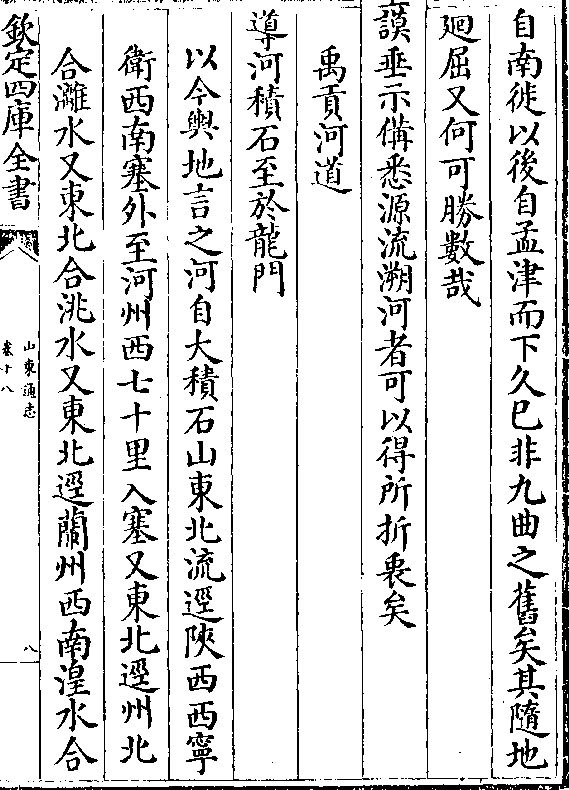 自南徙以後自孟津而下久已非九曲之舊矣其隨地
廻屈又何可勝數哉
謨垂示偹悉源流溯河者可以得所折衷矣
禹貢河道
導河積石至於龍門
以今輿地言之河自大積石山東北流逕陜西西寧
衛西南塞外至河州西七十里入塞又東北逕州北
合灕水又東北合洮水又東北逕蘭州西南湟水合
欽定四庫全書
山東通志
卷十八
八